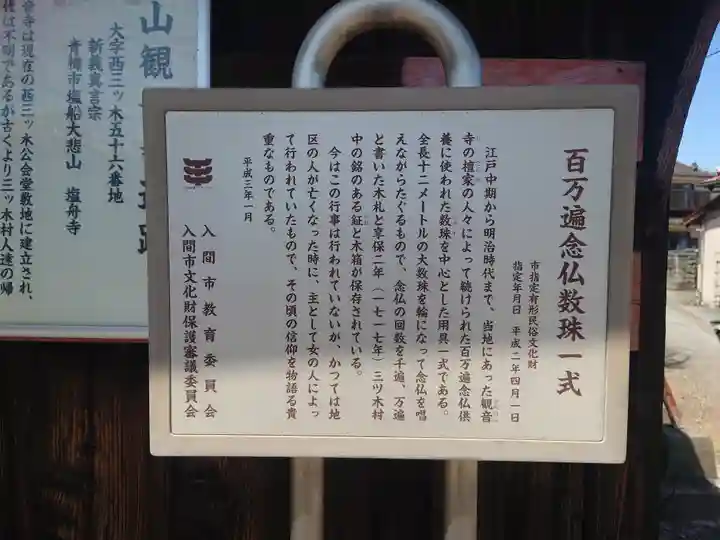 百万遍念仏数珠一式
市指定有形民俗文化財
指定年月日 平成二年四月一日
江戸中期から明治時代まで、当地にあった観音
寺の檀家の人々によって続けられた百万遍念仏供
養に使われた数珠を中心とした用具一式である。
全長十二メートルの大数珠を輪になって念仏を唱
えながらたぐるもので、念仏の回数を千遍、万遍
と書いた木札と享保二年(一七一七年)三ツ木村
中の銘のある鉦と木箱が保存されている。
今はこの行事は行われていないが、かつては地
区の人が亡くなった時に、主として女の人によっ
て行われていたもので、その頃の信仰を物語る貴
重なものである。
平成三年一月
入間市教育委員会
入間市文化財保護審議委員会
山観
大字西三ッ木五十六番地
新義真言宗
青梅市塩船大悲山 塩舟寺
音寺は現在の西三ッ木公会堂敷地に建立され、
は不明であるが古くより三ッ木村人達の帰